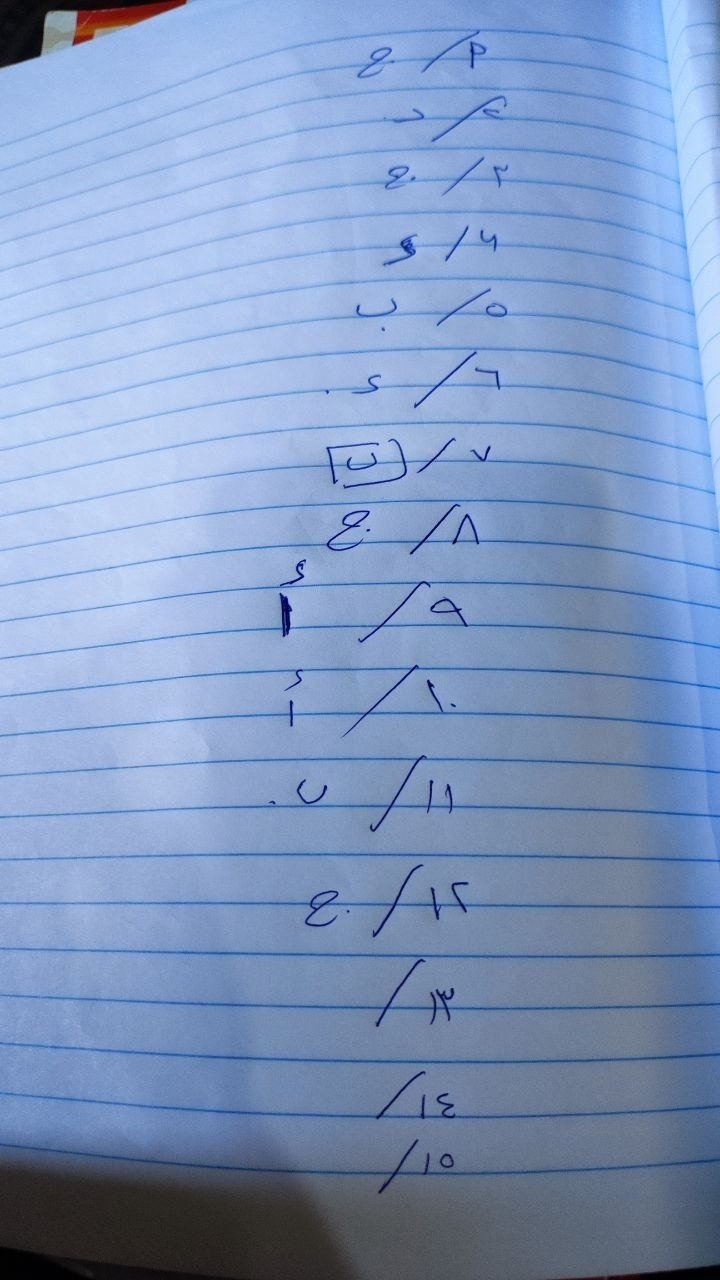 / ج
/ د
٢/ ج
/ د
٥/ ب
٦/ د
٧/ ب
٨/ ج
٩/ أ
١٠/ أ
١١/ ب
١٢/ ج
١٣/
١٤/
١٥/